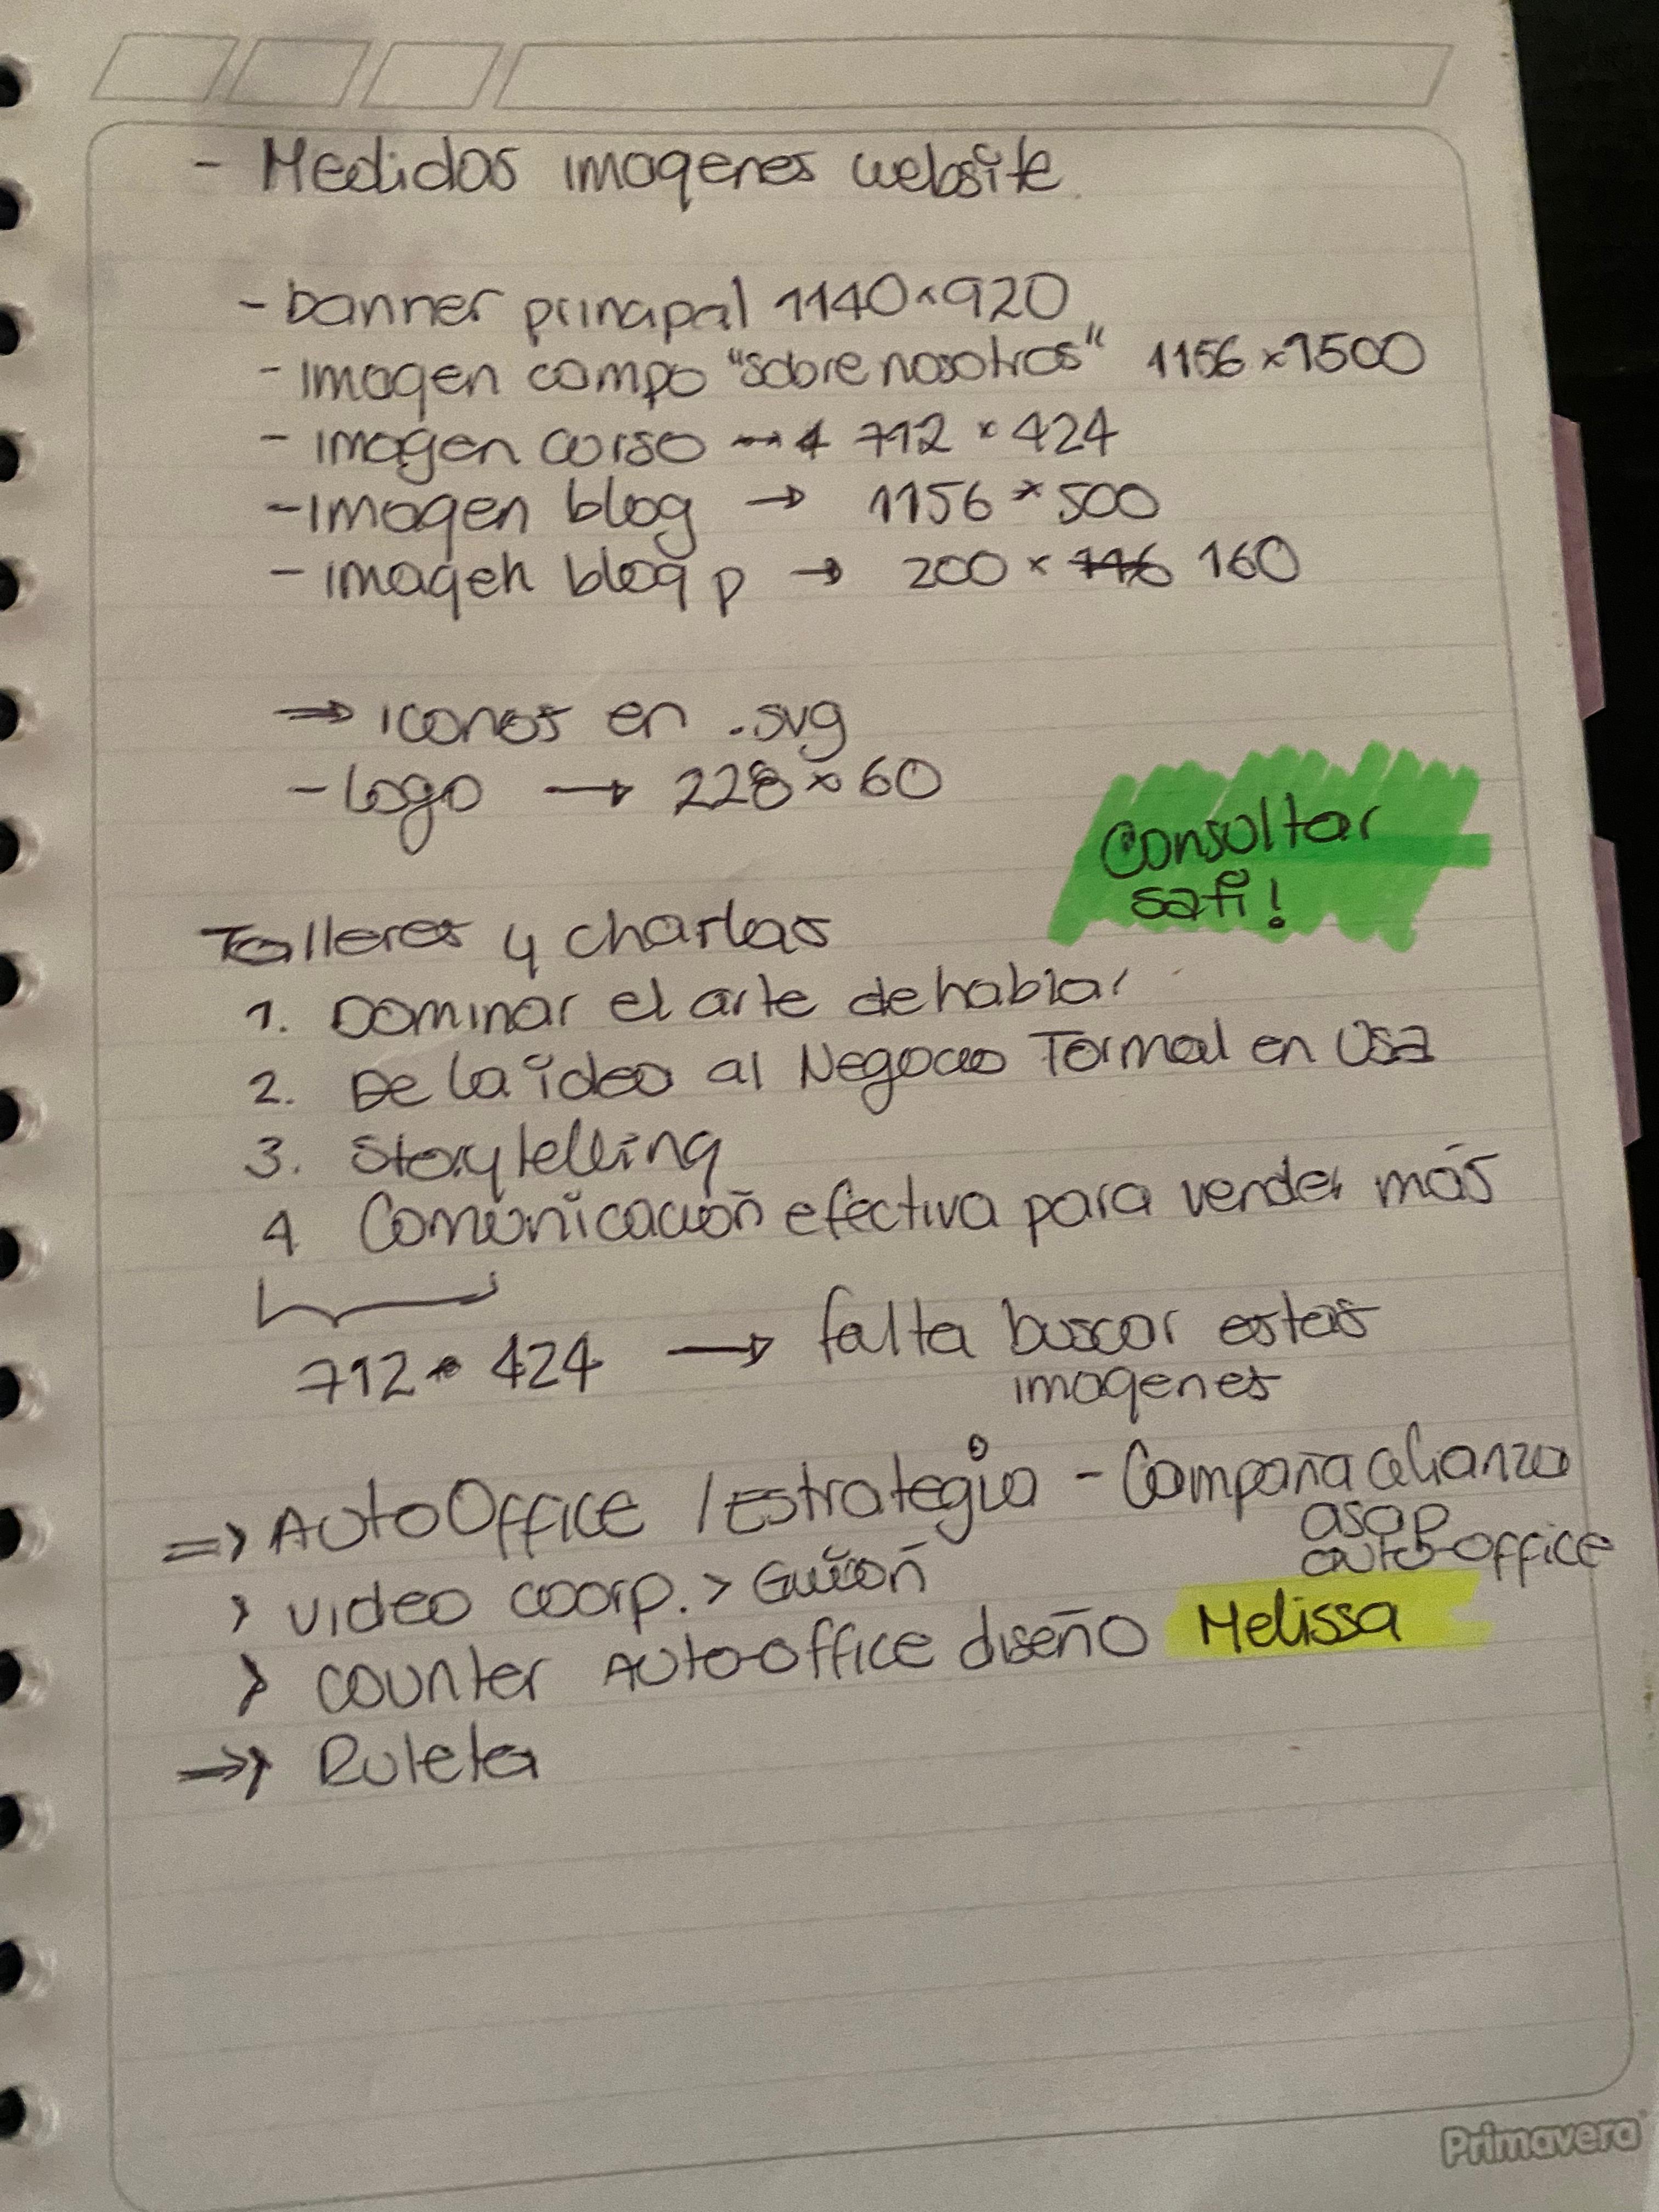 - Medidas imagenes website
- banner principal 1140x920
- Imagen campo "sobre nosotros" 1156x1500
- imagen curso → 712 x 424
- Imagen blog → 1156 x 500
- imagen blog p → 200 x 160
⇒ iconos en .svg
- Logo → 228x60
Consultar
safi!
Talleres y charlas
1. Dominar el arte de hablar
2. De la idea al Negocio Formal en Usa
3. Storytelling
4 Comunicación efectiva para vender más
712 x 424 → falta buscar estas
imagenes
⇒ AutoOffice / Estrategia - Campaña alianza
asap
auto-office
> video coorp. > Guión
> counter Auto-office diseño Melissa
⇒ Ruleta
Primavera